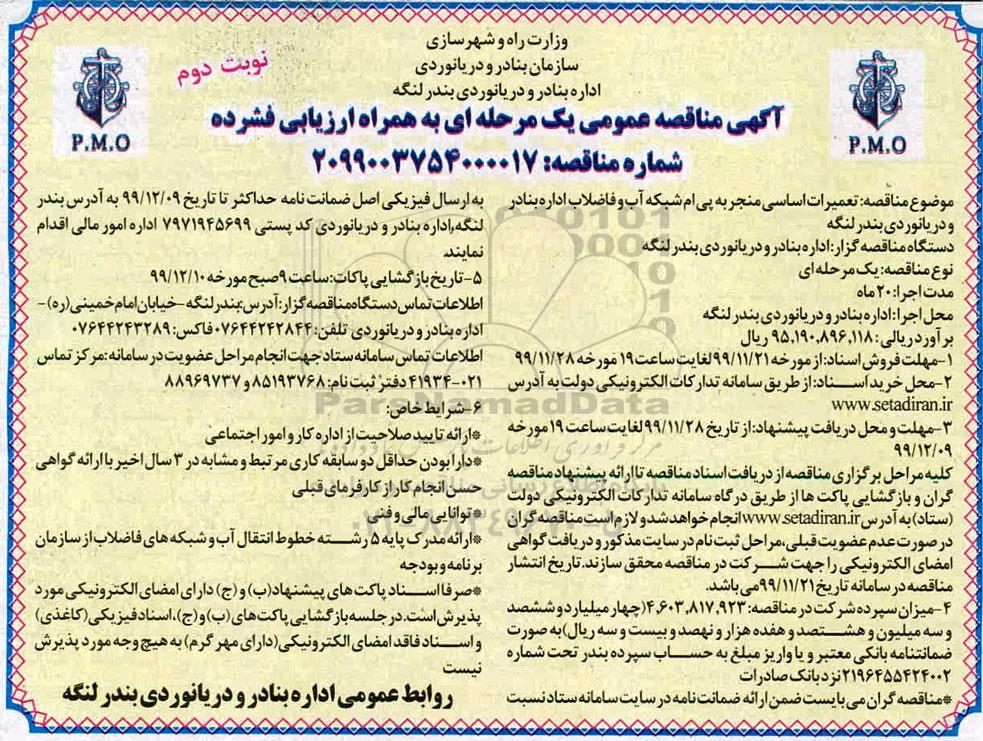 وزارت راه و شهرسازی
سازمان بنادر و دریانوردی
اداره بنادر و دریانوردی بندر لنگه
نوبت دوم
P.M.O
P.M.O
آگهی مناقصه عمومی یک مرحله ای به همراه ارزیابی فشرده
شماره مناقصه: ۲۰۹۹۰۰۳۷۵۴۰۰۰۰۱۷
موضوع مناقصه: تعمیرات اساسی منجر به پی ام شبکه آب و فاضلاب اداره بنادر
و دریانوردی بندر لنگه
دستگاه مناقصه گزار: اداره بنادر و دریانوردی بندر لنگه
نوع مناقصه: یک مرحله ای
مدت اجرا: ۲۰ ماه
محل اجرا: اداره بنادر و دریانوردی بندر لنگه
برآورد ریالی: ۹۵,۱۹۰,۸۹۶,۱۱۸ ریال
۱-مهلت فروش اسناد: از مورخه ۹۹/۱۱/۲۱ لغایت ساعت ۱۹ مورخه ۹۹/۱۱/۲۸
۲-محل خرید اسناد: از طریق سامانه تدارکات الکترونیکی دولت به آدرس
www.setadiran.ir
۳-مهلت و محل دریافت پیشنهاد: از تاریخ ۹۹/۱۱/۲۸ لغایت ساعت ۱۹ مورخه
۹۹/۱۲/۰۹
کلیه مراحل برگزاری مناقصه از دریافت اسناد مناقصه تا ارائه پیشنهاد مناقصه
گران و بازگشایی پاکت ها از طریق درگاه سامانه تدارکات الکترونیکی دولت
(ستاد) به آدرس www.setadiran.ir انجام خواهد شد و لازم است مناقصه گران
در صورت عدم عضویت قبلی، مراحل ثبت نام در سایت مذکور و دریافت گواهی
امضای الکترونیکی را جهت شرکت در مناقصه محقق سازند. تاریخ انتشار
مناقصه در سامانه تاریخ ۹۹/۱۱/۲۱ می باشد.
۴-میزان سپرده شرکت در مناقصه: ۴,۶۰۳,۸۱۷,۹۲۳ (چهار میلیارد و ششصد
و سه میلیون و هشتصد و هفده هزار و نهصد و بیست و سه ریال) به صورت
ضمانتنامه بانکی معتبر و یا واریز مبلغ به حساب سپرده بندر تحت شماره
۲۱۹۶۴۵۵۴۲۴۰۰۲ نزد بانک صادرات
*مناقصه گران می بایست ضمن ارائه ضمانت نامه در سایت سامانه ستاد نسبت
به ارسال فیزیکی اصل ضمانت نامه حداکثر تا تاریخ ۹۹/۱۲/۰۹ به آدرس بندر
لنگه، اداره بنادر و دریانوردی کد پستی ۷۹۷۱۹۴۵۶۹۹ اداره امور مالی اقدام
نمایند.
۵-تاریخ بازگشایی پاکات: ساعت ۹ صبح مورخه ۹۹/۱۲/۱۰
اطلاعات تماس دستگاه مناقصه گزار: آدرس: بندر لنگه -خیابان امام خمینی (ره)-
اداره بنادر و دریانوردی تلفن: ۰۷۶۴۴۲۴۲۸۴۴ فاکس: ۰۷۶۴۴۲۴۳۲۸۹
اطلاعات تماس سامانه ستاد جهت انجام مراحل عضویت در سامانه: مرکز تماس
۰۲۱-۴۱۹۳۴ دفتر ثبت نام: ۸۵۱۹۳۷۶۸ و ۸۸۹۶۹۷۳۷
۶-شرایط خاص:
*ارائه تایید صلاحیت از اداره کار و امور اجتماعی
*دارا بودن حداقل دو سابقه کاری مرتبط و مشابه در ۳ سال اخیر با ارائه گواهی
حسن انجام کار از کارفرمای قبلی
*توانایی مالی و فنی
*ارائه مدرک پایه ۵ رشته خطوط انتقال آب و شبکه های فاضلاب از سازمان
برنامه و بودجه
*صرفا اسناد پاکت های پیشنهاد (ب) و (ج) دارای امضای الکترونیکی مورد
پذیرش است. در جلسه بازگشایی پاکت های (ب) و (ج)، اسناد فیزیکی (کاغذی)
و اسناد فاقد امضای الکترونیکی (دارای مهر گرم) به هیچ وجه مورد پذیرش
نیست
روابط عمومی اداره بنادر و دریانوردی بندر لنگه
ParsNamadData